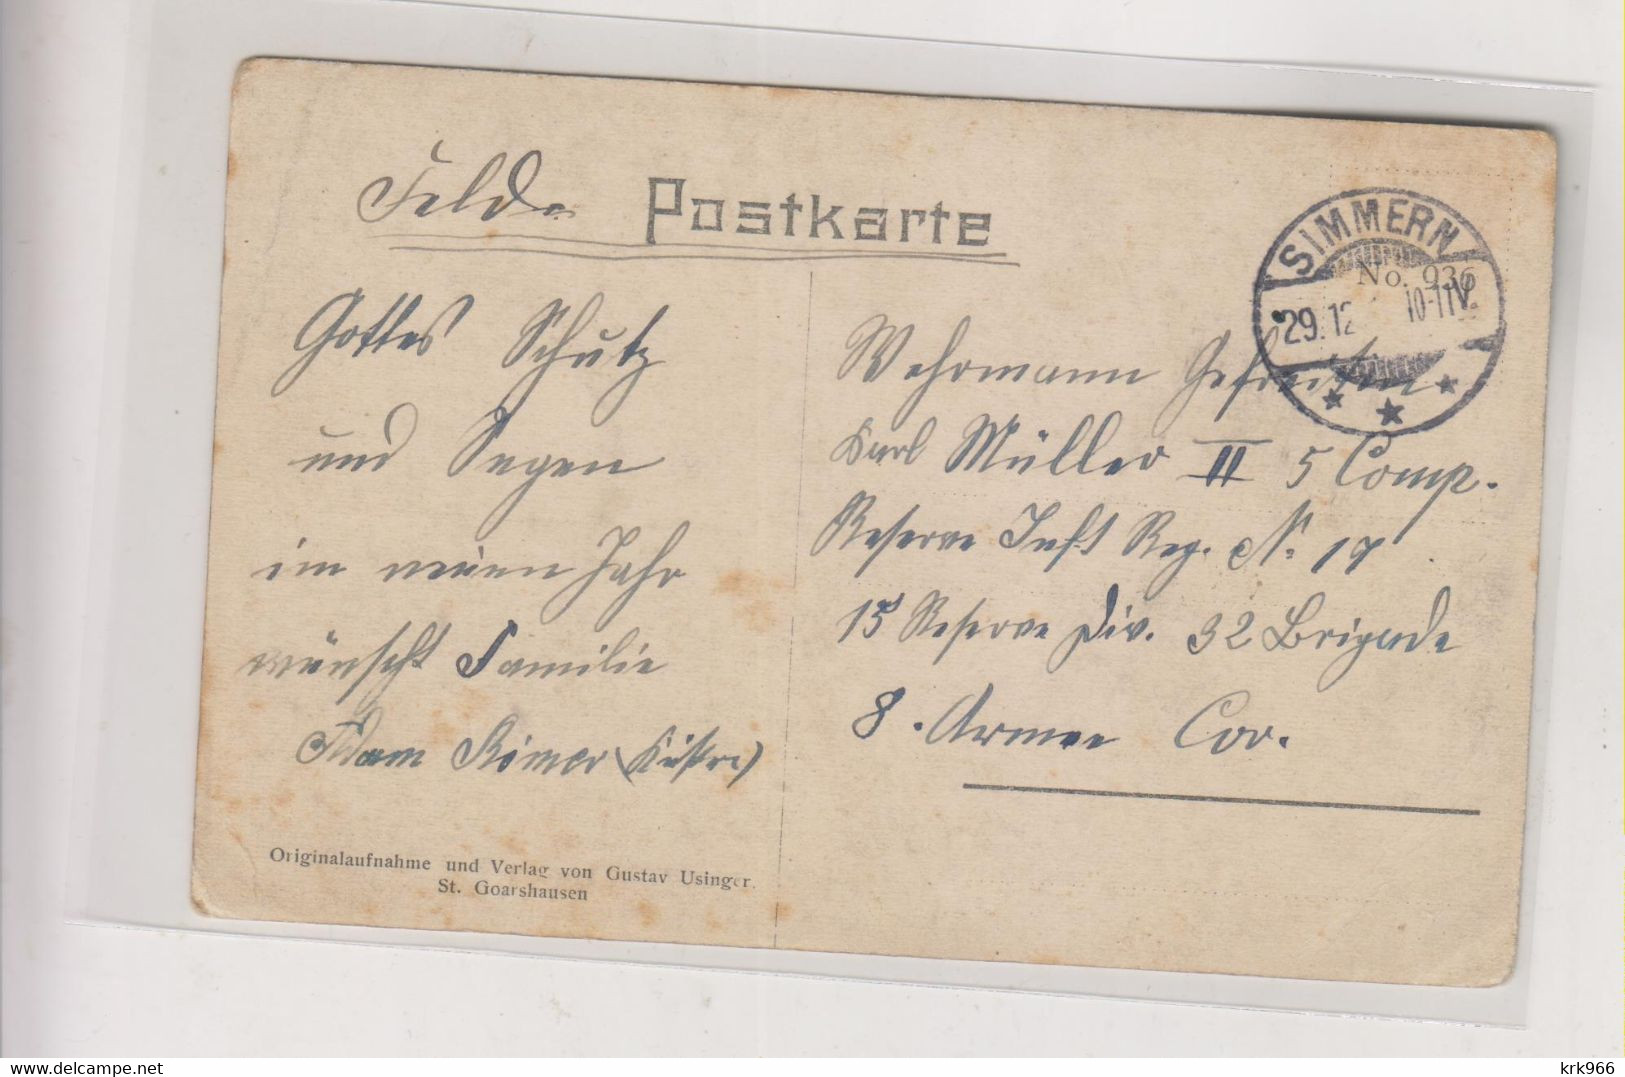 Feld- Postkarte
SIMMERN
No. 936
29.12 10-11V.
Gottes Schutz
und Segen
im neuen Jahr
wünscht Familie
Adam Römer
Wehrmann Gefreiten
Karl Müller II 5 Comp.
Reserve Inft Reg. No 17
15 Reserve Div. 32 Brigade
8. Armee Cor.
Originalaufnahme und Verlag von Gustav Usinger.
St. Goarshausen
delcampe.net
krk966